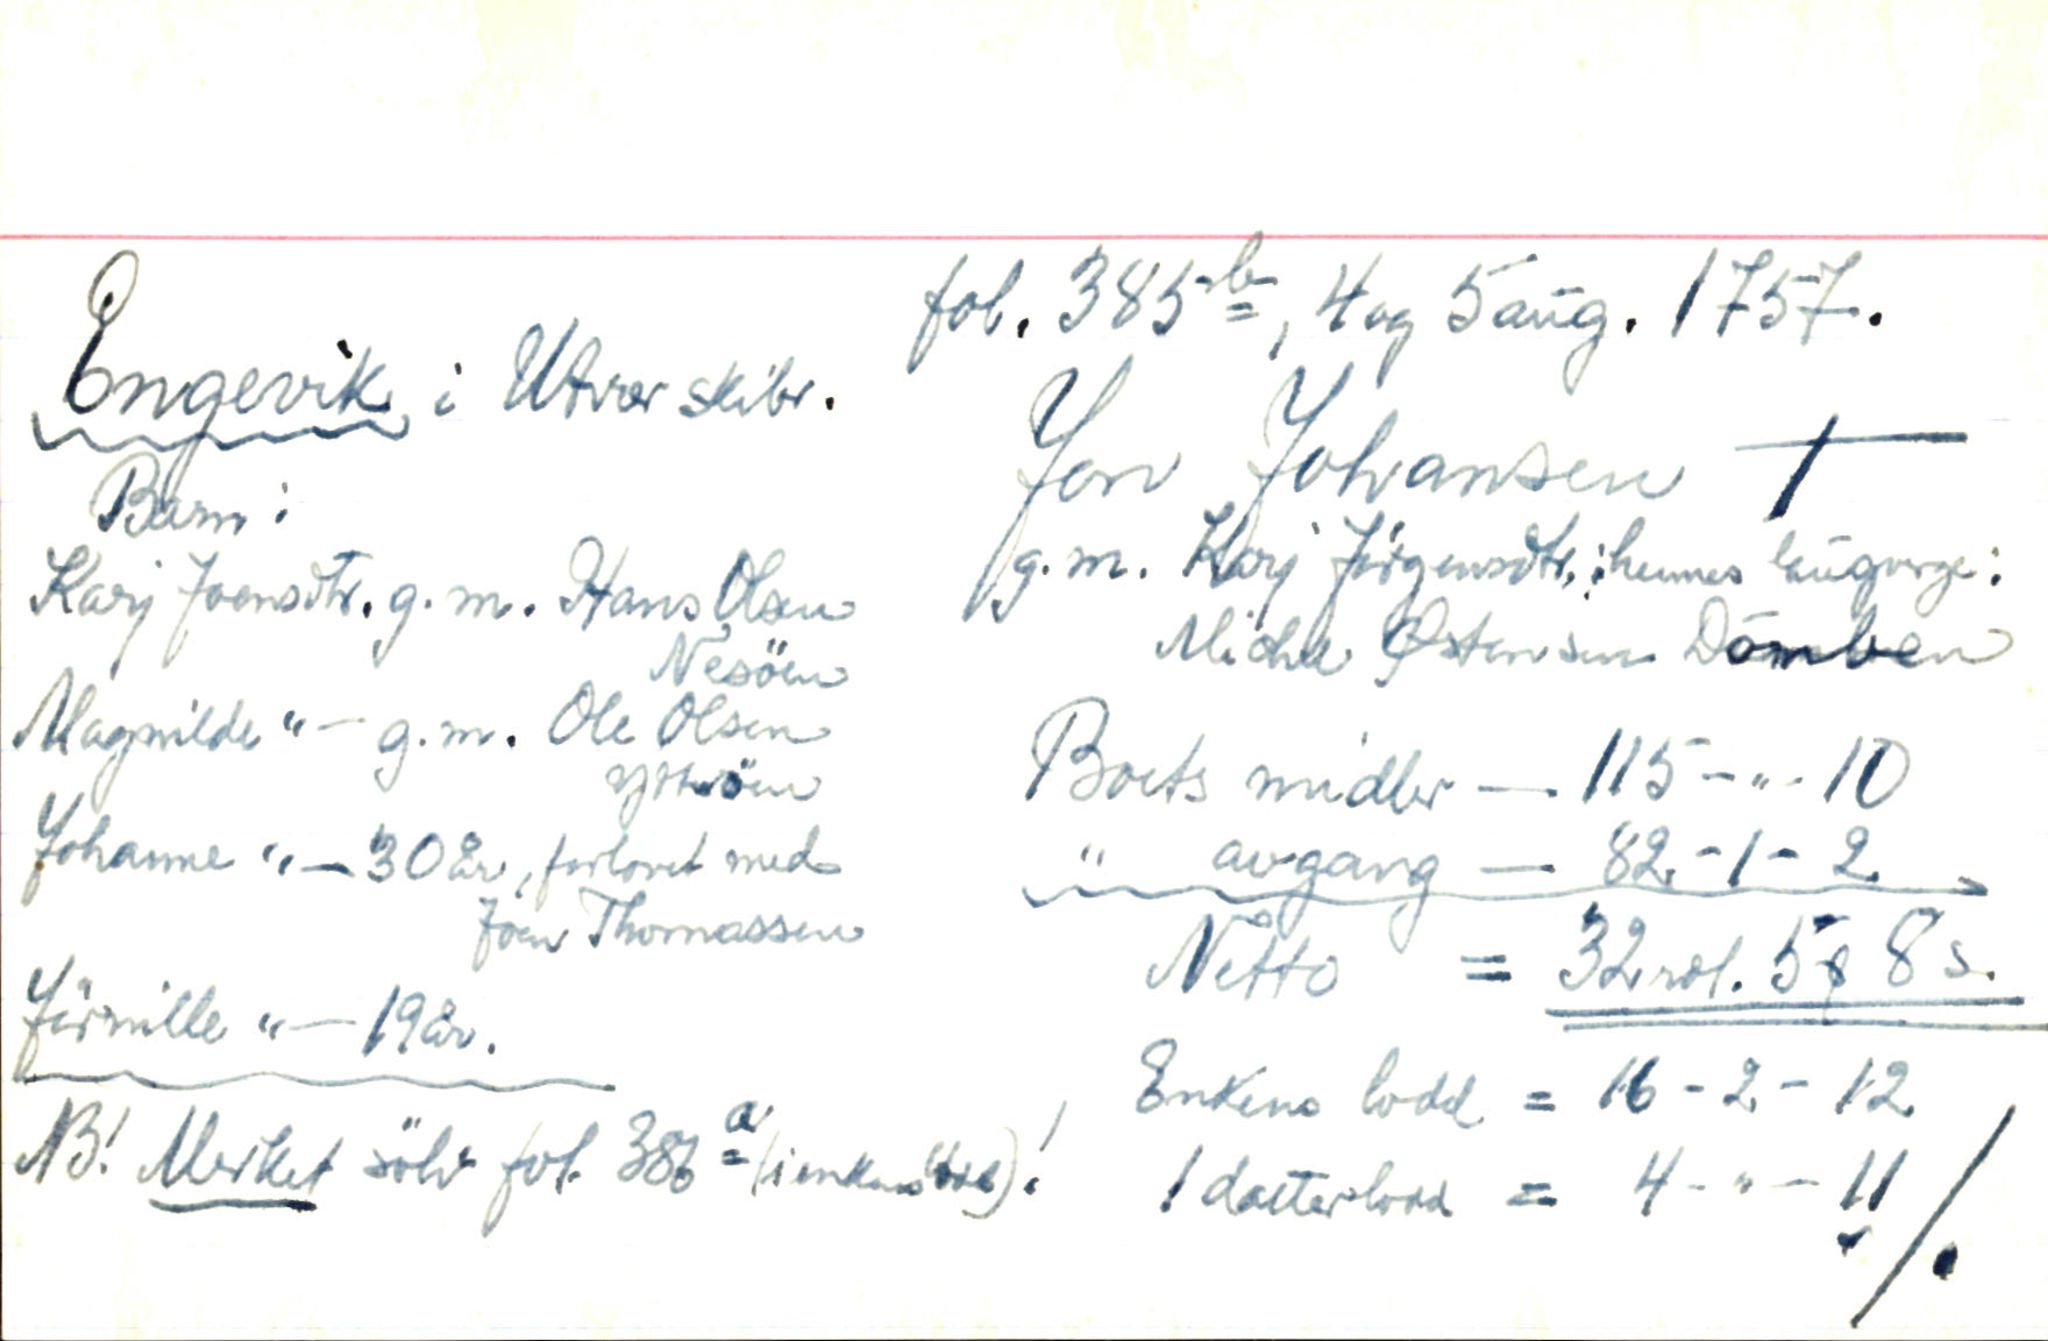 fol. 385 b, 4 og 5 aug. 1757.
Engevik i Utvær skibr.
Jon Johansen †
g.m. Kari Jörgensdtr., hennes laugverge:
Michel Østensen Domben
Barn:
Kari Joensdtr. g.m. Hans Olsen
Nesöen
Magnilde " — g.m. Ole Olsen
Ytteröen
Johanne " — 30 år, forlovet med
Joen Thomassen
Jörnille " — 19 år.
NB! Merket sölv fol. 386 a (i enkens lodd)!
Boets midler — 115 - " - 10
" avgang — 82 - 1 - 2
Netto = 32 rdl. 5 8 s.
Enkens lodd = 16 - 2 - 12
1 datterlodd = 4 - " - 11 /.